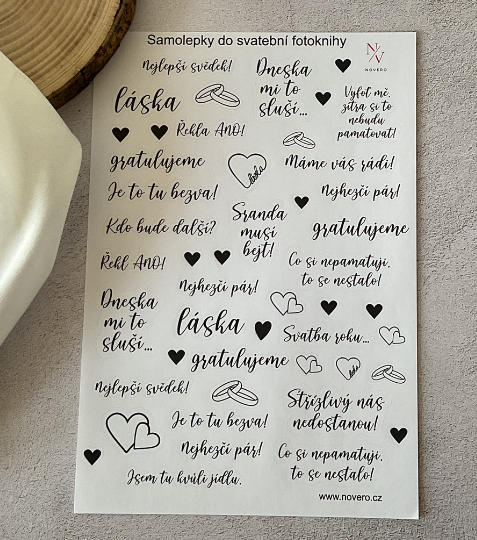 Samolepky do svatební fotoknihy
NOVERO
Nejlepší svědek!
Dneska
mi to
sluší...
Vyfoť mě,
zítra si to
nebudu
pamatovat!
láska
Řekla ANO!
gratulujeme
láska
Máme vás rádi!
Je to tu bezva!
Nejhezčí pár!
Kdo bude další?
Sranda
musí
bejt!
gratulujeme
Řekl ANO!
Co si nepamatuji,
to se nestalo!
Nejhezčí pár!
Dneska
mi to
sluší...
láska
Svatba roku...
gratulujeme
láska
Nejlepší svědek!
Střízlivý nás
nedostanou!
Je to tu bezva!
Nejhezčí pár!
Co si nepamatuji,
to se nestalo!
Jsem tu kvůli jídlu.
www.novero.cz